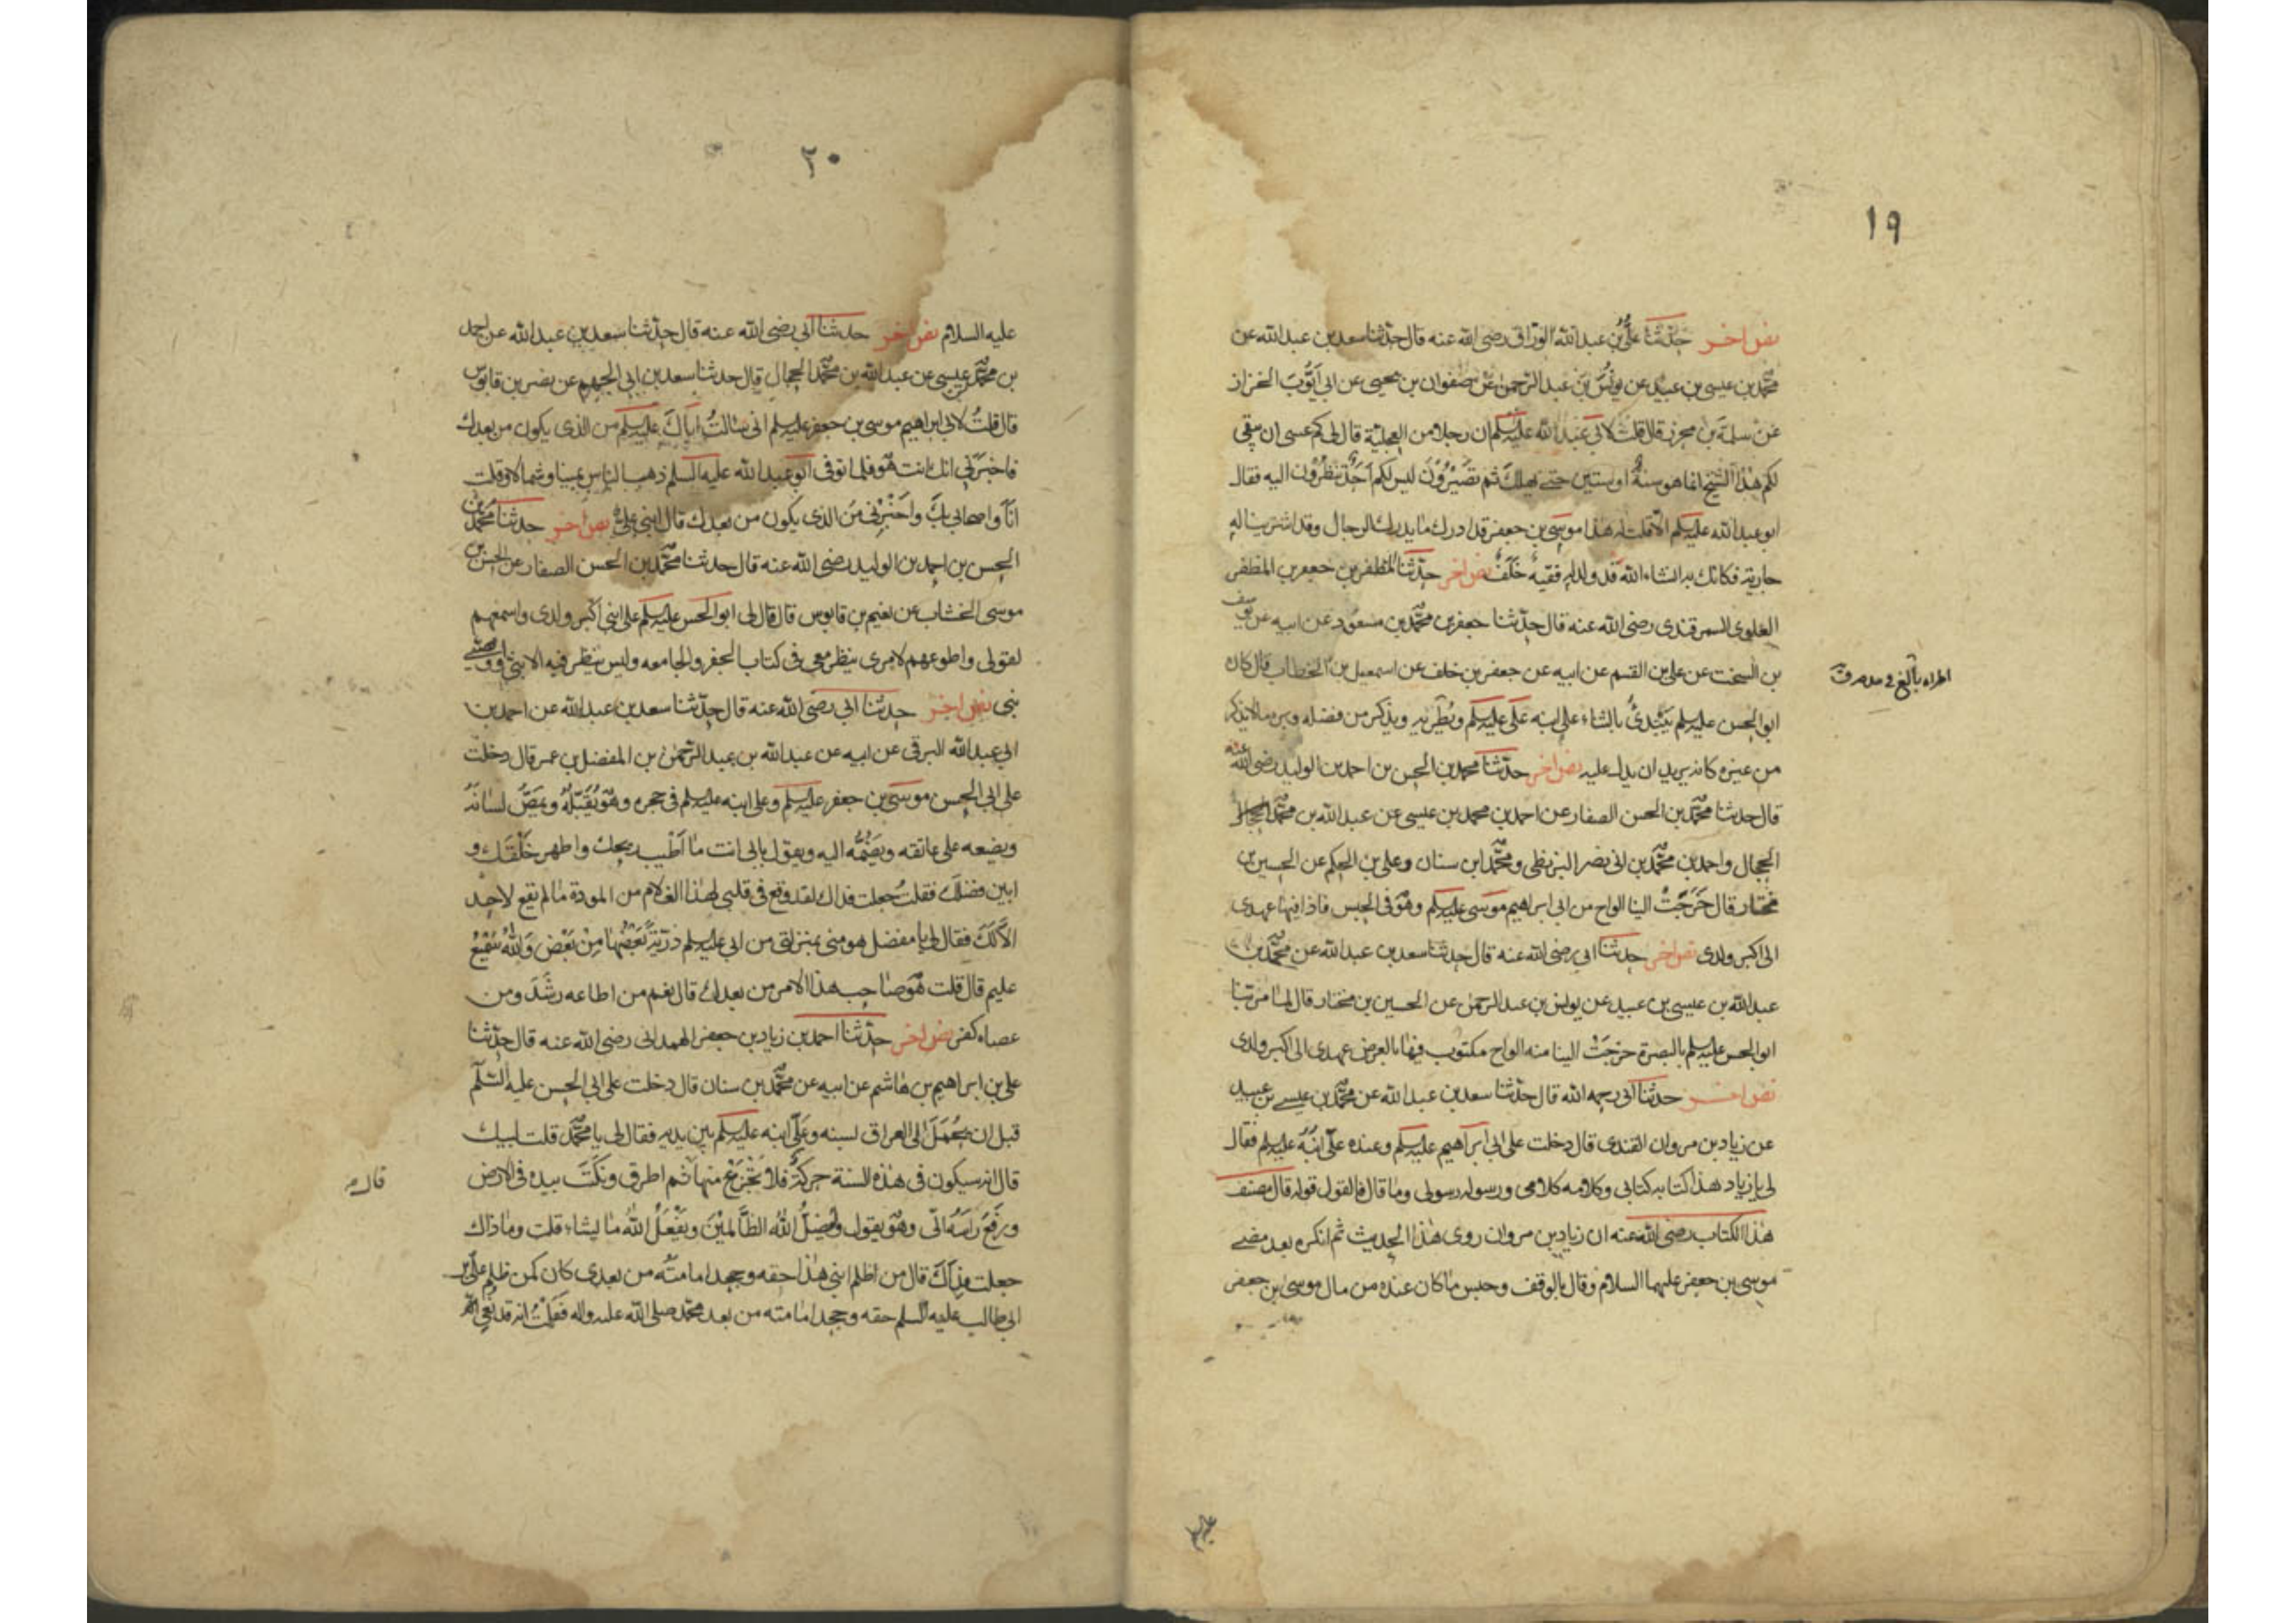 ١٩
نص اخر حدثنا علي بن عبد الله الوراق رضى الله عنه قال حدثنا سعد بن عبد الله عن
محمد بن عيسى بن عبيد عن يونس بن عبد الرحمن عن صفوان بن يحيى عن ابى ايوب الخزاز
عن سلمة بن محرز قال قلت لابى عبد الله عليه السلم ان رجلا من العجلية قال لى كم عسى ان يبقى
لكم هذا الشيخ انما هو سنة او سنتين حتى يهلك ثم تصيرون ليس لكم احد تنظرون اليه فقال
ابو عبد الله عليه السلم الا قلت له هذا موسى بن جعفر قد ادرك ما يدرك الرجال وقد اشترينا له
جارية فكانك به انشاء الله قد ولد له فقيه خلف نص اخر حدثنا المظفر بن جعفر بن المظفر
العلوى السمرقندى رضى الله عنه قال حدثنا جعفر بن محمد بن مسعود عن ابيه عن يوسف
بن السخت عن على بن القسم عن ابيه عن جعفر بن خلف عن اسمعيل بن الخطاب قال كان
ابو الحسن عليه السلم يبتدئ بالثناء على ابنه على عليه السلم ويطريه ويذكر من فضله وبره ما لا يذكر
من غيره كانه يريد ان يدل عليه نص اخر حدثنا محمد بن الحسن بن احمد بن الوليد رضى الله عنه
قال حدثنا محمد بن الحسن الصفار عن احمد بن محمد بن عيسى عن عبد الله بن محمد
الحجال واحمد بن محمد بن ابى نصر البزنطى ومحمد ابن سنان وعلى بن الحكم عن الحسين بن
مختار قال خرجت الينا الواح من ابى ابراهيم موسى عليه السلم وهو فى الحبس فاذا فيها عهدى
الى اكبر ولدى نص اخر حدثنا ابى رضى الله عنه قال حدثنا سعد بن عبد الله عن محمد بن
عبد الله بن عيسى بن عبيد عن يونس بن عبد الرحمن عن الحسين بن مختار قال لما مر بنا
ابو الحسن عليه السلم بالبصرة خرجت الينا منه الواح مكتوب فيها بالعرض عهدى الى اكبر ولدى
نص اخر حدثنا ابى رحمه الله قال حدثنا سعد بن عبد الله عن محمد بن عيسى بن عبيد
عن زياد بن مروان القندى قال دخلت على ابى ابراهيم عليه السلم وعنده على ابنه عليه السلم فقال
لى يا زياد هذا كتابه كتابى وكلامه كلامى ورسوله رسولى وما قال فالقول قوله قال مصنف
هذا الكتاب رضى الله عنه ان زياد بن مروان روى هذا الحديث ثم انكره بعد مضى
موسى بن جعفر عليهما السلام وقال بالوقف وحبس ما كان عنده من مال موسى بن جعفر
٢٠
عليه السلام نص اخر حدثنا ابى رضى الله عنه قال حدثنا سعد بن عبد الله عن احمد
بن محمد بن عيسى عن عبد الله بن محمد الحجال قال حدثنا سعد بن ابى الجهم عن نصر بن قابوس
قال قلت لابى ابراهيم موسى بن جعفر عليه السلم انى سالت اباك عليه السلم من الذى يكون من بعدك
فاخبرنى انك انت هو فلما توفى ابو عبد الله عليه السلم ذهب الناس يمينا وشمالا وقلت
انا واصحابى بك واخبرنى من الذى يكون من بعدك قال ابنى على نص اخر حدثنا محمد بن
الحسن بن احمد بن الوليد رضى الله عنه قال حدثنا محمد بن الحسن الصفار عن الحسن بن
موسى الخشاب عن نعيم بن قابوس قال قال لى ابو الحسن عليه السلم على ابنى اكبر ولدى واسمعهم
لقولى واطوعهم لامرى ينظر معى فى كتاب الجفر والجامعه وليس ينظر فيه الا نبى او وصى
نبى نص اخر حدثنا ابى رضى الله عنه قال حدثنا سعد بن عبد الله عن احمد بن
ابى عبد الله البرقى عن ابيه عن عبد الله بن عبد الرحمن بن المفضل بن عمر قال دخلت
على ابى الحسن موسى بن جعفر عليه السلم وعلى ابنه عليه السلم فى حجره وهو يقبله ويمص لسانه
ويضعه على عاتقه ويضمه اليه ويقول بابى انت ما اطيب ريحك واطهر خلقك و
ابين فضلك فقلت جعلت فداك لقد وقع فى قلبى لهذا الغلام من المودة ما لم يقع لاحد
الا لك فقال لى يا مفضل هو منى بمنزلتى من ابى عليه السلم ذرية بعضها من بعض والله سميع
عليم قال قلت هو صاحب هذا الامر من بعدك قال نعم من اطاعه رشد ومن
عصاه كفر نص اخر حدثنا احمد بن زياد بن جعفر الهمدانى رضى الله عنه قال حدثنا
على بن ابراهيم بن هاشم عن ابيه عن محمد بن سنان قال دخلت على ابى الحسن عليه السلم
قبل ان يحمل الى العراق بسنه وعلى ابنه عليه السلم بين يديه فقال لى يا محمد قلت لبيك
قال انه سيكون فى هذه السنة حركة فلا تجزع منها ثم اطرق ونكت بيده فى الارض
ورفع راسه الى وهو يقول ويضل الله الظالمين ويفعل الله ما يشاء قلت وما ذاك
جعلت فداك قال من اظلم ابنى هذا حقه وجحد امامته من بعدى كان كمن ظلم على بن
ابى طالب عليه السلم حقه وجحد امامته من بعد محمد صلى الله عليه واله فعلمت انه قد نعى الى